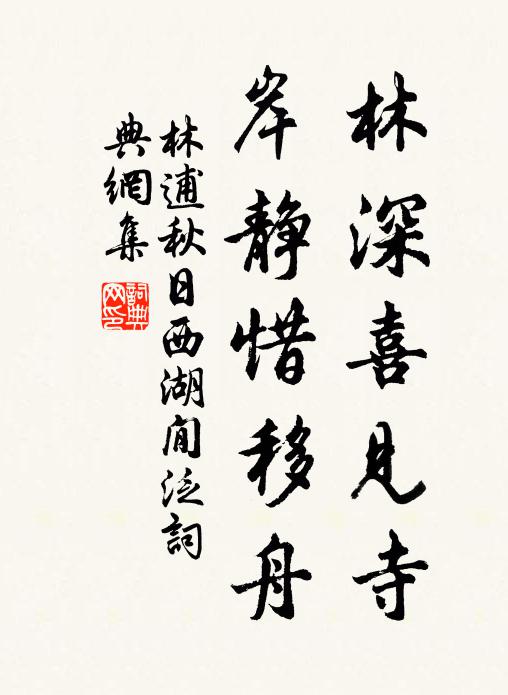 林深喜見寺
岸靜惜移舟
林逋秋日西湖閒泛詞
典網集
詞典
网印